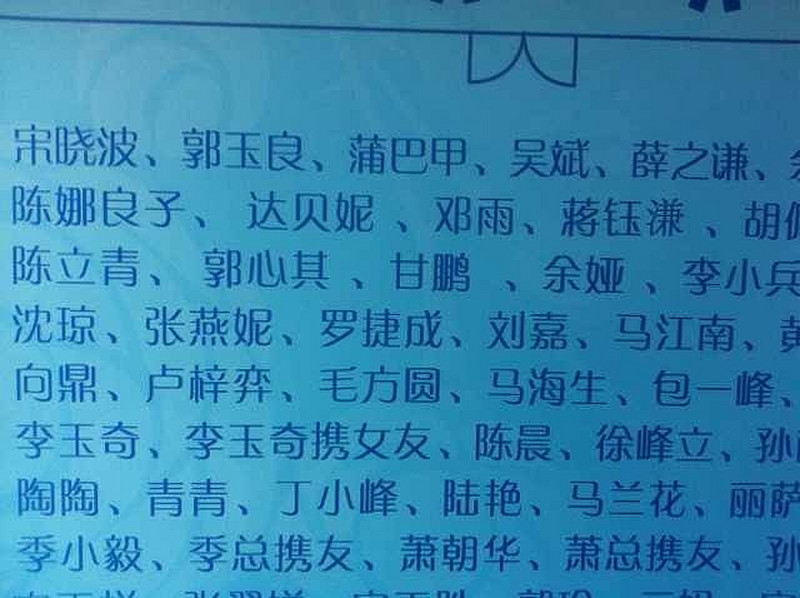 宋晓波、郭玉良、蒲巴甲、吴斌、薛之谦、
陈娜良子、达贝妮、邓雨、蒋钰溓、胡
陈立青、郭心其、甘鹏、余娅、李小兵
沈琼、张燕妮、罗捷成、刘嘉、马江南、黄
向鼎、卢梓弈、毛方圆、马海生、包一峰、
李玉奇、李玉奇携女友、陈晨、徐峰立、孙
陶陶、青青、丁小峰、陆艳、马兰花、丽萨
季小毅、季总携友、萧朝华、萧总携友、孙